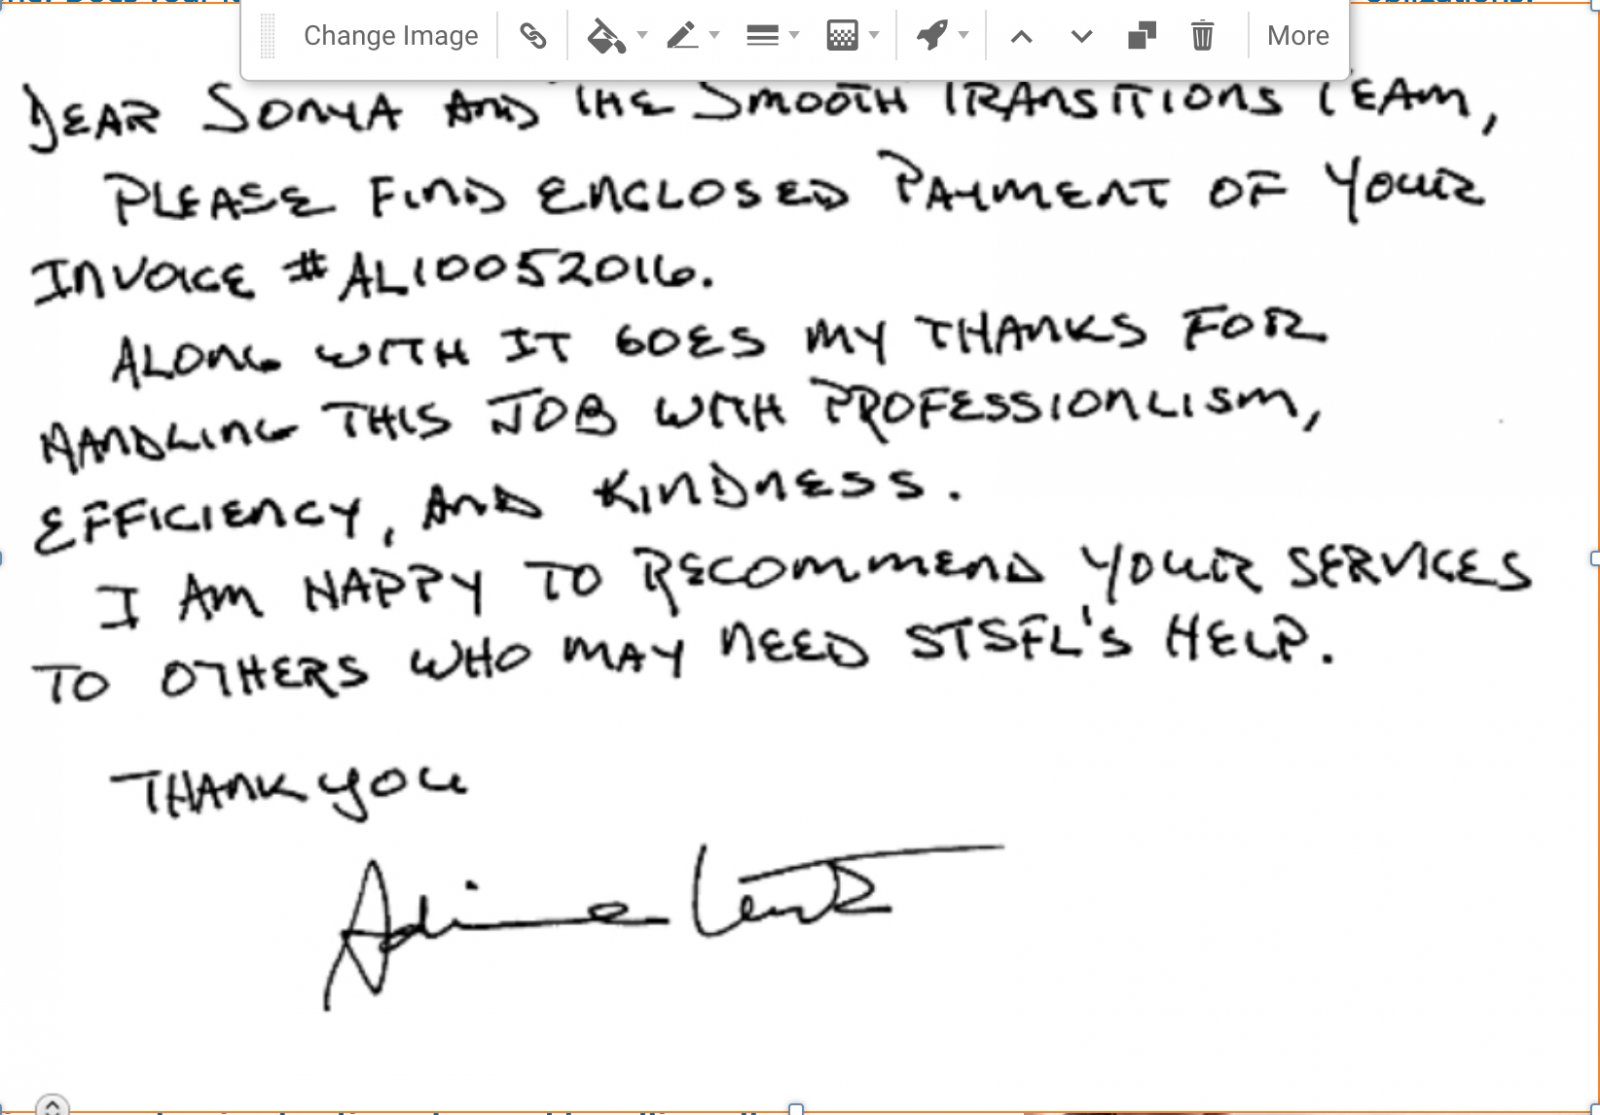 Change Image More
DEAR SONYA AND THE SMOOTH TRANSITIONS TEAM,
PLEASE FIND ENCLOSED PAYMENT OF YOUR
INVOICE #AL10052016.
ALONG WITH IT GOES MY THANKS FOR
HANDLING THIS JOB WITH PROFESSIONLISM,
EFFICIENCY, AND KINDNESS.
I AM HAPPY TO RECOMMEND YOUR SERVICES
TO OTHERS WHO MAY NEED STSFL'S HELP.
THANK YOU